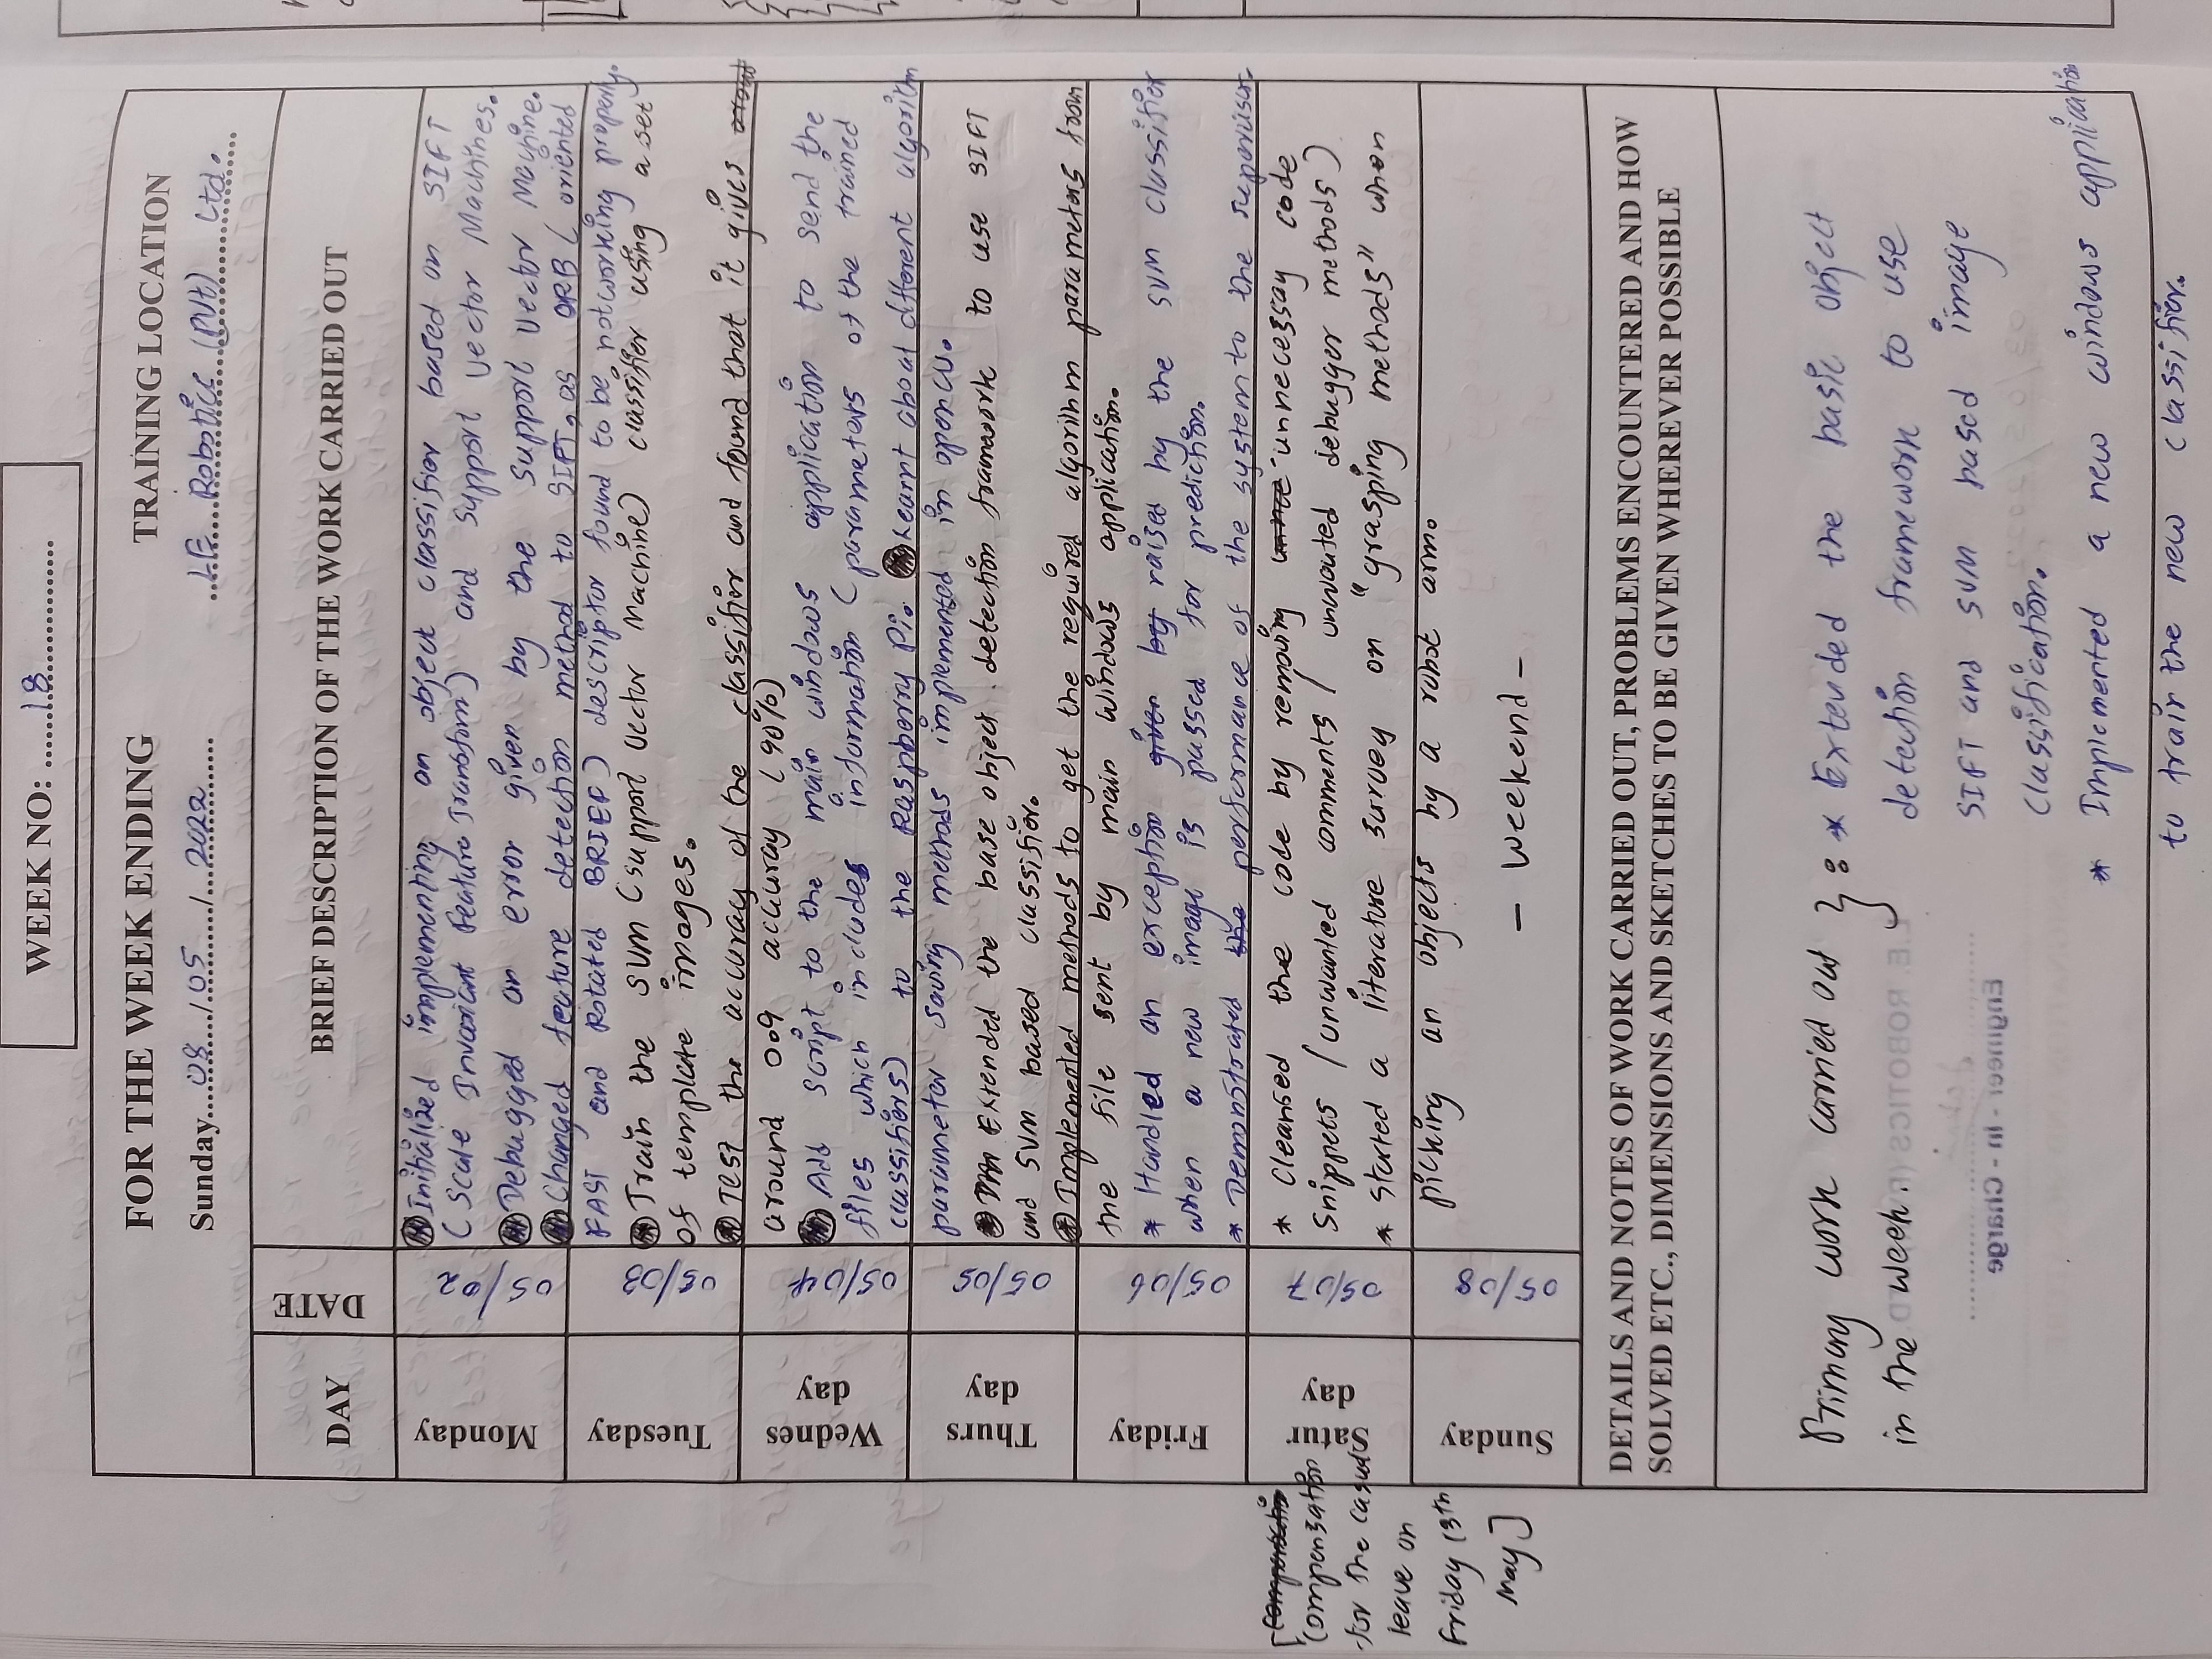 WEEK NO: ........18....................
FOR THE WEEK ENDING
TRAINING LOCATION
Sunday....08..../.05......./...2022.......
LE Robotics (pvt) Ltd.
DAY
DATE
BRIEF DESCRIPTION OF THE WORK CARRIED OUT
Monday
05/02
Initialized implementing an object classifier based on SIFT
(Scale Invariant Feature Transform) and Support Vector Machines.
Debugged an error given by the support vector Machine.
Changed feature detection method to SIFT, as ORB (oriented
FAST and Rotated BRIEF) descriptor found to be notworking properly.
Tuesday
05/03
Train the SVM (support vector Machine) classifier using a set
of template images.
Test the accuracy of the classifier and found that it gives
around 0.9 accuracy (90%)
Wednes
day
05/04
Add script to the main windows application to send the
files which includes information (parameters of the trained
classifiers) to the Raspberry Pi. Learnt about different algorithm
parameter saving methods implemented in opencv.
Thurs
day
05/05
Extended the base object detection framework to use SIFT
and SVM based classifier.
Implemented methods to get the required algorithm parameters from
the file sent by main windows application.
Friday
05/06
* Handled an exception given by raised by the SVM classifier
when a new image is passed for prediction.
* Demonstrated the performance of the system to the supervisor.
Satur
day
05/07
* Cleansed the code by removing unnece unnecessay code
Snippets / unwanted comments / unwanted debugger methods)
* Started a literature survey on "grasping methods" when
picking an objects by a robot arm.
[compensation
compensation
for the casual
leave on
Friday 13th
May]
Sunday
05/08
- Weekend -
DETAILS AND NOTES OF WORK CARRIED OUT, PROBLEMS ENCOUNTERED AND HOW
SOLVED ETC., DIMENSIONS AND SKETCHES TO BE GIVEN WHEREVER POSSIBLE
Primary work carried out
in the week.
} : * Extended the basic object
detection framework to use
SIFT and SVM based image
classification.
* Implemented a new windows application
to train the new classifier.